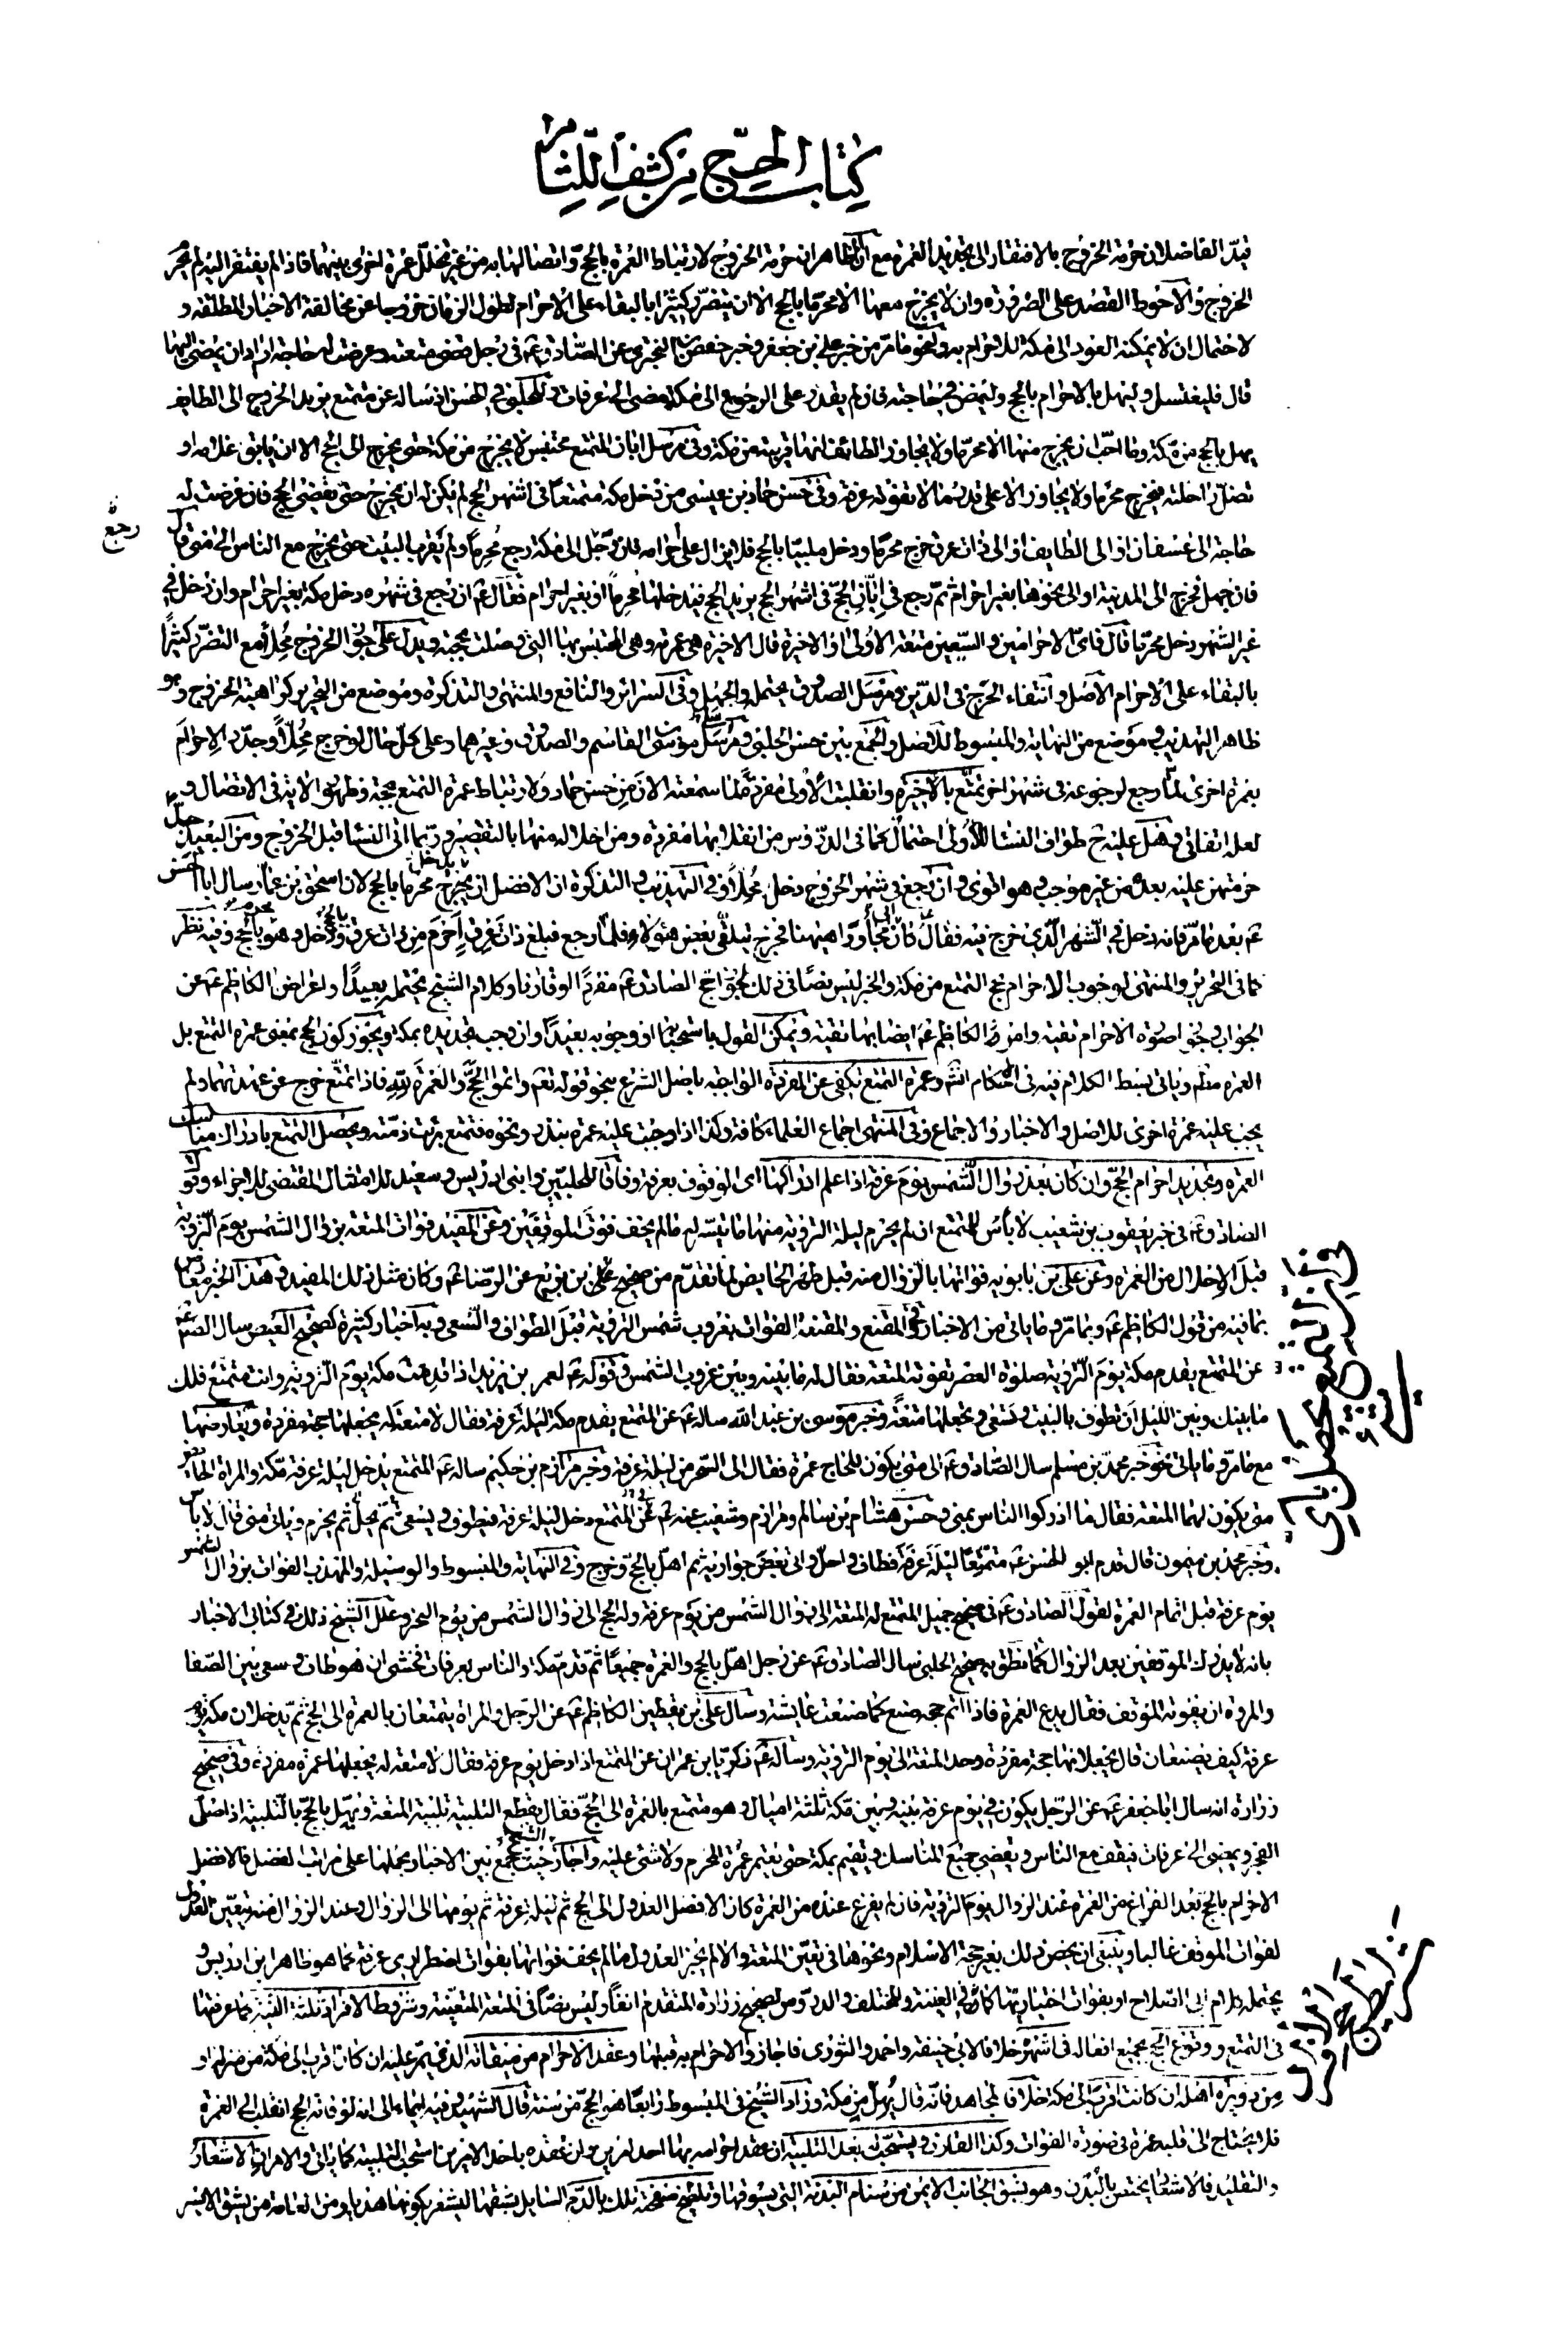 كتاب الحج من كشف اللثام
قيد الفاضلان حرمة الخروج بالافتقار الى تجديد العمرة مع ان الظاهر ان حرمة الخروج لارتباط العمرة بالحج واتصالها به من غير تخلل عمرة اخرى بينهما فاذا لم يفتقر اليه لم يحرم
الخروج والاحوط القصد على الضرورة وان لا يخرج معها الا محرما بالحج الا ان يتضرر كثيرا بالبقاء على الاحرام لطول الزمان خروجا عن مخالفة الاخبار المطلقة و
لاحتمال ان لا يمكنه العود الى مكة للاحرام به ولنحو ما مر من خبر علي بن جعفر وخبر حفص بن البختري عن الصادق ع في رجل قضى متعته وعرضت له حاجة اراد ان يمضي اليها
قال فليغتسل وليهل بالاحرام بالحج وليمض في حاجته فان لم يقدر على الرجوع الى مكة مضى الى عرفات وللحلبي في الحسن اذ ساله عن متمتع يريد الخروج الى الطايف
يهل بالحج من مكة وما احب ان يخرج منها الا محرما ولا يجاوز الطائف انها قريبة من مكة وفي مرسل ابان المتمتع محتبس لا يخرج من مكة حتى يخرج الى الحج الا ان يابق غلامه او
تضل راحلته فيخرج محرما ولا يجاوز الا على قدر ما لا تفوته عرفة وفي حسن حماد بن عيسى من دخل مكة متمتعا في اشهر الحج لم يكن له ان يخرج حتى يقضي الحج فان عرضت له
حاجة الى عسفان او الى الطايف او الى ذات عرق خرج محرما ودخل ملبيا بالحج فلا يزال على احرامه فان رجع الى مكة رجع محرما ولم يقرب البيت حتى يخرج مع الناس الى منى قال
رجع
فان جهل فخرج الى المدينة او الى نحوها بغير احرام ثم رجع في ابان الحج في اشهر الحج يريد الحج فيدخلها محرما او بغير احرام فقال ع ان رجع في شهره دخل مكة بغير احرام وان دخل في
غير الشهر دخل محرما قال فاي الاحرامين والمتعتين متعته الاولى او الاخيرة قال الاخيرة هي عمرته وهي المحتبس بها التي وصلت بحجته ويدل على جواز الخروج محلا مع التضرر كثيرا
بالبقاء على الاحرام الاصل وانتفاء الحرج في الدين ومرسل الصدوق يحتمله والجهل وفي السرائر والنافع والمنتهى والتذكرة وموضع من التحرير كراهية الخروج وهو
ظاهر التهذيب وموضع من النهاية والمبسوط للاصل والجمع بين حسن الحلبي ومرسل موسى بن القاسم والصدوق وغيرهما وعلى كل حال لو خرج محلا وجدد الاحرام
بعمرة اخرى لما رجع لرجوعه في شهر اخر تمتع بالاخيرة وانقلبت الاولى مفردة لما سمعته الان من حسن حماد ولارتباط عمرة التمتع بحجه وظهور الاية في الاتصال و
لعله اتفاقي وهل عليه ح طواف النساء للاولى احتمال كما في الدروس من انقلابها مفردة ومن اخلاله منها بالتقصير وربما اتى النساء قبل الخروج ومن البعيد جدا
حرمتهن عليه بعده من غير موجب وهو اقوى وان رجع في شهر الخروج دخل محلا وفي التهذيب والتذكرة ان الافضل ان يدخل محرما بالحج لان اسحق بن عمار سال ابا الحسن
ع بعد ما مر فانه دخل في الشهر الذي خرج فيه فقال كان ابي مجاورا هيهنا فخرج يتلقى بعض هؤلاء فلما رجع فبلغ ذات عرق احرم من ذات عرق بالحج ودخل وهو محرم بالحج وفيه نظر
كما في التحرير والمنتهى لوجوب الاحرام بحج التمتع من مكة والخبر ليس نصا في ذلك لجواز حج الصادق ع مفردا او قارنا وكلام الشيخ يحتمله بعيدا واعراض الكاظم ع عن
الجواب وجواز صورة الاحرام تقية وامره الكاظم ع ايضا بها تقية ويمكن القول باستحبابها او وجوبه بعيدا وان وجب تجديده بمكة ويجوز كون الحج بمعنى عمرة التمتع بل
العمرة مثله وياتي بسط الكلام فيه في الاحكام انش وعمرة التمتع تكفي عن المفردة الواجبة باصل الشرع بنحو قوله تعالى واتموا الحج والعمرة لله فاذا تمتع خرج عن عهدتهما ولم
يجب عليه عمرة اخرى للاصل والاخبار والاجماع وفي المنتهى اجماع العلماء كافة وكذا اذا وجبت عليه عمرة بنذر ونحوه فتمتع برئت ذمته ويحصل التمتع بادراك مناسك
العمرة وتجديد احرام الحج وان كان بعد زوال الشمس يوم عرفة اذا علم ادراكها اى الوقوف بعرفة وفاقا للحلبيين وابني ادريس وسعيد للامتثال المقتضي للاجزاء وقول
الصادق ع في خبر يعقوب بن شعيب لا باس للمتمتع ان لم يحرم ليلة التروية منها ما تيسر له ما لم يخف فوت الموقفين وعن المفيد فوات المتعة بزوال الشمس يوم التروية
قبل الاحلال من العمرة وعن علي بن بابويه فواتها بالزوال منه قبل طهر الحايض لما تقدم من صحيح ابن بزيع عن الرضا ع وكان مثل ذلك المفيد وهذا الخبر معارض
بما فيه من قول الكاظم ع وبما مر وما ياتي من الاخبار وفي المقنع والمقنعة الفوات بغروب شمس التروية قبل الطواف والسعي وبه اخبار كثيرة كصحيح العيص سال الصادق ع
عن المتمتع يقدم مكة يوم التروية صلوة العصر تفوته المتعة فقال له ما بينه وبين غروب الشمس وقوله ع لعمر بن يزيد اذا قدمت مكة يوم التروية وانت متمتع فلك
ما بينك وبين الليل ان تطوف بالبيت وتسعى وتجعلها متعة وخبر موسى بن عبد الله ساله ع عن المتمتع يقدم مكة ليلة عرفة فقال لا متعة له يجعلها حجة مفردة ويعارضها
مع ما مر وما ياتي نحو خبر محمد بن مسلم سال الصادق ع الى متى يكون للحاج عمرة فقال الى السحر من ليلة عرفة وخبر مرازم بن حكيم ساله ع المتمتع يدخل ليلة عرفة مكة والمراة الحايض
متى يكون لهما المتعة فقال ما ادركوا الناس بمنى وحسن هشام بن سالم ومرازم وشعيب عنه ع عن المتمتع دخل ليلة عرفة فيطوف ويسعى ثم يحل ثم يحرم وياتي منى قال لا باس
وخبر محمد بن ميمون قال قدم ابو الحسن ع متمتعا ليلة عرفة فطاف واحل واتى بعض جواريه ثم اهل بالحج وخرج وفي النهاية والمبسوط والوسيلة والمهذب الفوات بزوال الشمس
يوم عرفة قبل اتمام العمرة لقول الصادق ع في صحيح جميل المتمتع له المتعة الى زوال الشمس من يوم عرفة وله الحج الى زوال الشمس من يوم النحر وعلل الشيخ ذلك في كتابي الاخبار
بانه لا يدرك الموقفين بعد الزوال كما نطق به صحيح الحلبي سال الصادق ع عن رجل اهل بالحج والعمرة جميعا ثم قدم مكة والناس بعرفات فخشى ان هو طاف وسعى بين الصفا
والمروة ان يفوته الموقف فقال يدع العمرة فاذا اتم حجه صنع كما صنعت عايشة وسال علي بن يقطين الكاظم ع عن الرجل والمراة يتمتعان بالعمرة الى الحج ثم يدخلان مكة يوم
عرفة كيف يصنعان قال يجعلانها حجة مفردة وحد المتعة الى يوم التروية وساله ع زكريا بن عمران عن المتمتع اذا دخل يوم عرفة فقال لا متعة له يجعلها عمرة مفردة وفي صحيح
زرارة انه سال ابا جعفر ع عن الرجل يكون في يوم عرفة بينه وبين مكة ثلثة اميال وهو متمتع بالعمرة الى الحج فقال يقطع التلبية تلبية المتعة ويهل بالحج بالتلبية اذا صلى
الفجر ويمضي الى عرفات فيقف مع الناس ويقضي جميع المناسك ويقيم بمكة حتى يعتمر عمرة المحرم ولا شئ عليه واجاز الشيخ حيث جمع بين الاخبار بحملها على مراتب الفضل فالافضل
الاحرام بالحج بعد الفراغ من العمرة عند الزوال يوم التروية فان لم يفرغ عنده من العمرة كان الافضل العدول الى الحج ثم ليلة عرفة ثم يومها الى الزوال وعند الزوال منه يتعين العدول
لفوات الموقف غالبا وينبغي ان يخص ذلك بغير حجة الاسلام ونحوها في تعين المتعة والا لم يجز العدول ما لم يخف فواتها بفوات اضطراري عرفة كما هو ظاهر ابن ادريس و
يحتمله كلام ابي الصلاح او بفوات اختياريها كما في الغنية والمختلف والدروس لصحيح زرارة المتقدم انفا وليس نصا في المتعة المتعينة وشروط الافراد ثلثة النية كما عرفتها
في التمتع ووقوع الحج بجميع افعاله في اشهره خلافا لابي حنيفة واحمد والثوري فاجازوا الاحرام به قبلها وعقد الاحرام من ميقاته الذي يمر عليه ان كان اقرب الى مكة من منزله او
من دويرة اهله ان كانت اقرب الى مكة خلافا لمجاهد فانه قال يهل من مكة وزاد الشيخ في المبسوط رابعا هو الحج من سنته قال الشهيد وفيه ايماء الى انه لو فاته الحج انقلب الى العمرة
فلا يحتاج الى قلبه عمرة في صورة الفوات وكذا القارن ويستحب له بعد التلبية ان عقد احرامه بها احد امرين وان عقده باحد الامرين استحب التلبية كما ياتي والامران الاشعار
والتقليد فالاشعار يختص بالبدن وهو بشق الجانب الايمن من سنام البدنة التي يسوقها وتلطيخ صفحته تلك بالدم السايل بشقها ليشعر بكونها هديا ومن العامة من يشق الايسر